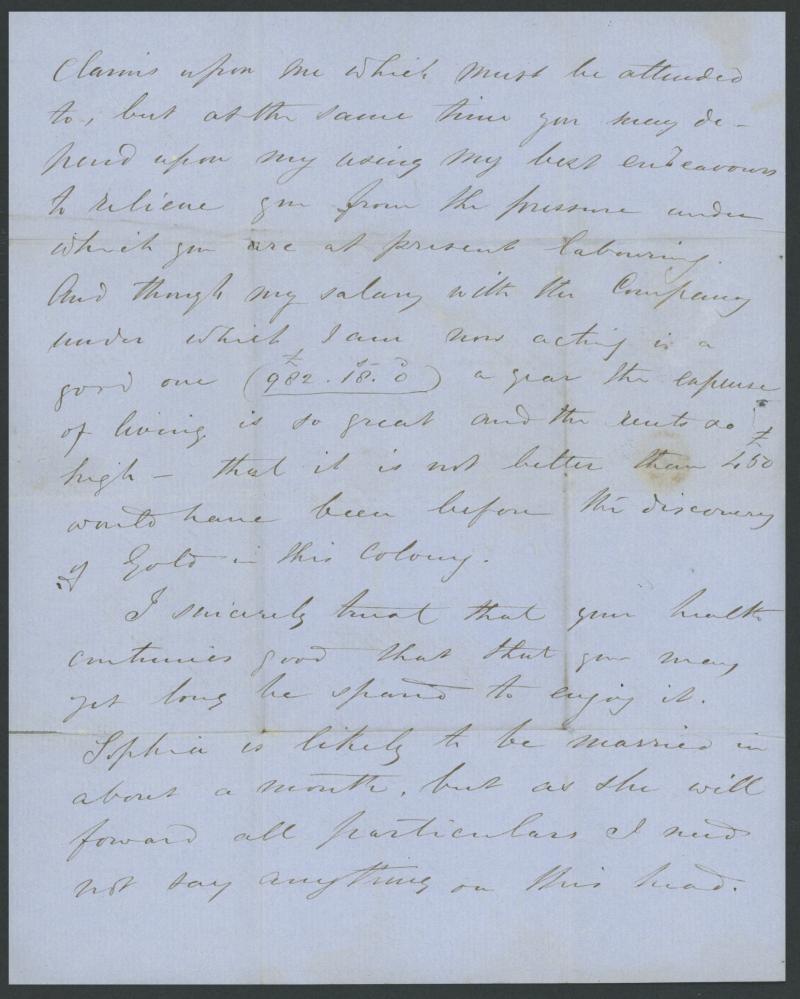 Claims upon me which must be attended
to, but at the same time you may de-
pend upon my using my best endeavours
to relieve you from the pressure under
which you are at present labouring.
And though my salary with the Company
under which I am now acting is a
good one (£982.18s.0d) a year the expense
of living is so great and the rents so
high – that it is not better than £450
would have been before the discovery
of Gold in this Colony.
I sincerely trust that your health
continues good that that you may
yet long be spared to enjoy it.
Sophia is likely to be married in
about a month, but as she will
forward all particulars I need
not say anything on this head.